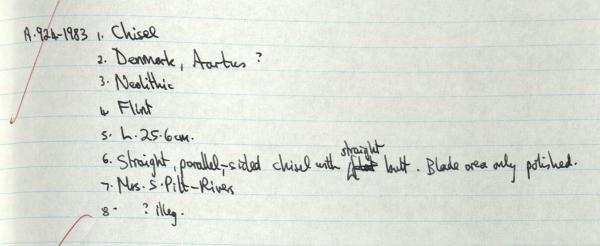 A.924-1983 1. Chisel
2. Denmark, Aarhus ?
3. Neolithic
4. Flint
5. L. 25.6cm.
6. Straight, parallel-sided chisel with straight butt. Blade area only polished.
7. Mrs. S. Pitt-Rivers
8. ? illeg.